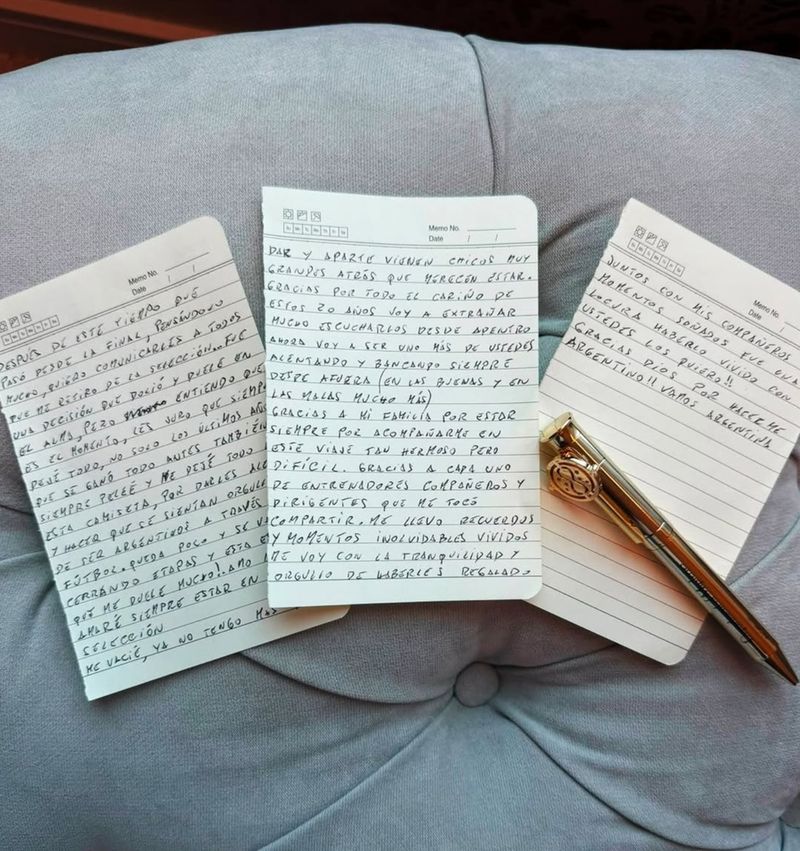 Memo No.
Date / /
DESPUÉS DE ESTE TIEMPO QUE
PASÓ DESDE LA FINAL, PENSÁNDOLO
MUCHO, QUIERO COMUNICARLES A TODOS
QUE ME RETIRO DE LA SELECCIÓN. FUE
UNA DECISIÓN QUE DOLIÓ Y DUELE EN
EL ALMA, PERO ENTIENDO QUE
ES EL MOMENTO, LES JURO QUE SIEMP
DEJÉ TODO, NO SOLO LOS ÚLTIMOS AÑO
QUE SE GANÓ TODO ANTES TAMBIÉN
SIEMPRE PELEÉ Y ME DEJÉ TODO
ESTA CAMISETA, POR DARLES ALE
Y HACER QUE SE SIENTAN ORGULL
DE SER ARGENTINOS A TRAVÉS
FÚTBOL. QUEDA POCO Y SE VA
CERRANDO ETAPAS Y ESTA E
QUE ME DUELE MUCHO!. AMO
AMARÉ SIEMPRE ESTAR EN
SELECCIÓN
ME VACIÉ, YA NO TENGO MÁS
Memo No.
Date / /
DAR Y APARTE VIENEN CHICOS MUY
GRANDES ATRÁS QUE MERECEN ESTAR.
GRACIAS POR TODO EL CARIÑO DE
ESTOS 20 AÑOS VOY A EXTRAÑAR
MUCHO ESCUCHARLOS DESDE ADENTRO
AHORA VOY A SER UNO MÁS DE USTEDES
ALENTANDO Y BANCANDO SIEMPRE
DESDE AFUERA (EN LAS BUENAS Y EN
LAS MALAS MUCHO MÁS)
GRACIAS A MI FAMILIA POR ESTAR
SIEMPRE POR ACOMPAÑARME EN
ESTE VIAJE TAN HERMOSO PERO
DIFÍCIL. GRACIAS A CADA UNO
DE ENTRENADORES COMPAÑEROS Y
DIRIGENTES QUE ME TOCÓ
COMPARTIR. ME LLEVO RECUERDOS
Y MOMENTOS INOLVIDABLES VIVIDOS
ME VOY CON LA TRANQUILIDAD Y
ORGULLO DE HABERLES REGALADO
Memo No.
Date /
JUNTOS CON MIS COMPAÑEROS
MOMENTOS SOÑADOS FUE UNA
LOCURA HABERLO VIVIDO CON
USTEDES LOS QUIERO!!
GRACIAS DIOS POR HACERME
ARGENTINO!! VAMOS ARGENTINA